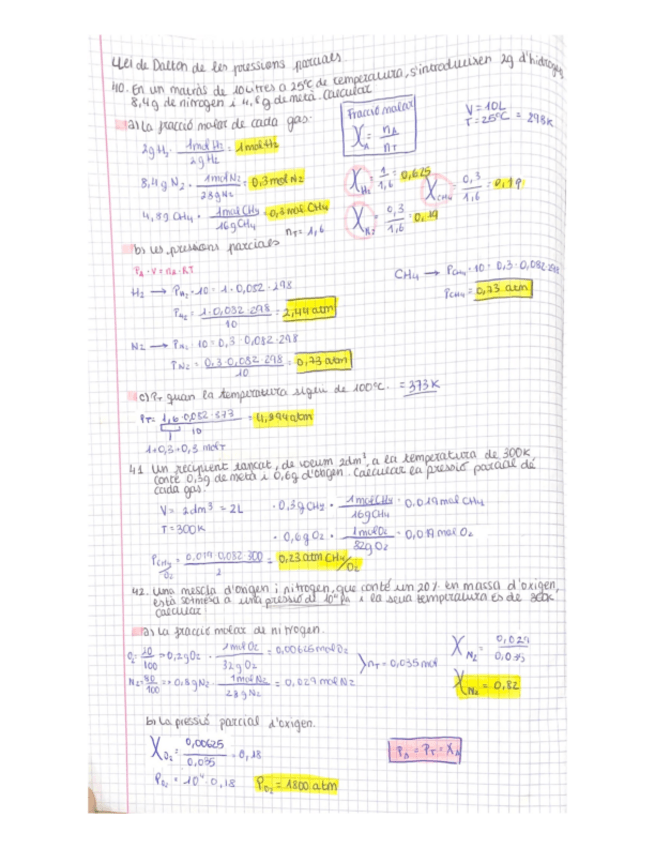 Llei de Dalton de les pressions parcials
40. En un matràs de 10 litres a 25°C de temperatura, s'introdueixen 2g d'hidrogen,
8,4g de nitrogen i 4,8g de metà. Calcular
a) La fracció molar de cada gas.
Fracció molar
X_A = n_A / n_T
V = 10L
T = 25°C = 298K
2g H2 · 1mol H2 / 2g H2 = 1mol H2
8,4g N2 · 1mol N2 / 28g N2 = 0,3mol N2
4,8g CH4 · 1mol CH4 / 16g CH4 = 0,3 mol CH4
n_T = 1,6
X_H2 = 1 / 1,6 = 0,625
X_CH4 = 0,3 / 1,6 = 0,19
X_N2 = 0,3 / 1,6 = 0,19
b) Les pressions parcials
P_A · V = n_A · RT
H2 → P_H2 · 10 = 1 · 0,082 · 298
P_H2 = 1 · 0,082 · 298 / 10 = 2,44 atm
N2 → P_N2 · 10 = 0,3 · 0,082 · 298
P_N2 = 0,3 · 0,082 · 298 / 10 = 0,73 atm
CH4 → P_CH4 · 10 = 0,3 · 0,082 · 298
P_CH4 = 0,73 atm
c) P_T quan la temperatura sigui de 100°C. = 373K
P_T = 1,6 · 0,082 · 373 / 10 = 4,894 atm
1+0,3+0,3 mols T
41. Un recipient tancat, de volum 2dm³, a la temperatura de 300K,
conté 0,3g de metà i 0,6g d'oxigen. Calcular la pressió parcial de
cada gas.
V = 2dm³ = 2L
T = 300K
· 0,3g CH4 · 1mol CH4 / 16g CH4 = 0,019 mol CH4
· 0,6g O2 · 1mol O2 / 32g O2 = 0,019 mol O2
P_CH4/O2 = 0,019 · 0,082 · 300 / 2 = 0,23 atm CH4/O2
42. Una mescla d'oxigen i nitrogen, que conté un 20% en massa d'oxigen,
està sotmesa a una pressió de 10⁴ Pa i la seva temperatura és de 300K
Calcular:
a) La fracció molar de nitrogen.
O2 = 20/100 → 0,2g O2 · 1mol O2 / 32g O2 = 0,00625mol O2
N2 = 80/100 → 0,8g N2 · 1mol N2 / 28g N2 = 0,029 mol N2
n_T = 0,035 mol
X_N2 = 0,029 / 0,035
X_N2 = 0,82
b) La pressió parcial d'oxigen.
X_O2 = 0,00625 / 0,035 = 0,18
P_O2 = 10⁴ · 0,18
P_O2 = 1800 atm
P_A = P_T = X_A